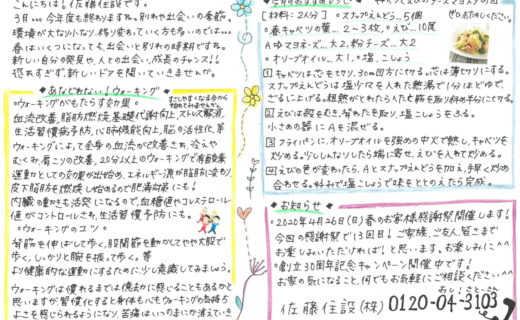 こんにちは！佐藤住設です。
3月…今年度も終わりますね。別れや出会いの季節。
環境が大なり小なり、移り変わっていく方も多いのでは…
春はいくつになっても、出会いと別れの時期ですね。
新しい自分の発見や、人との出会い、成長のチャンス!!
恐れすぎず、新しいドアを開いていきませんか。
あなどれない！ウォーキング
・ウォーキングがもたらす効果。
血流改善、脂肪燃焼、基礎代謝向上、ストレス解消、
生活習慣病予防、心肺機能向上、脳の活性化、等
ウォーキングによって全身の血流が改善され、冷えや
むくみ、肩こりの改善。20分以上のウォーキングで有酸素
運動としての効果が出始め、エネルギー源が脂肪に変わり、
皮下脂肪を燃焼し始めるので肥満効果にも！
内臓の動きも活発になるので、血糖値やコレステロール
値がコントロールされ、生活習慣予防にも。
・ウォーキングのコツ。
背筋を伸ばして歩く、股関節を動かしてやや大股で
歩く、しっかりと腕を振って歩く。等
より健康的な運動にするために、少し意識してみましょう。
ウォーキングは慣れるまでは億劫に感じることもあるかと
思いますが習慣化すると身体も心もウォーキングの気持ち
よさを感じられるようになり、苦痛はいつのまにか消えていき
5月のおすすめレシピ
[材料：2人分] ・スナップえんどう…5個
・春キャベツの葉…2〜3枚、・えび…10尾
・A マヨネーズ…大2、粉チーズ…大2
・オリーブオイル…大1、・塩、こしょう
1 キャベツは芯を切り、3cm四方に切る。芯は薄切りにする。
スナップえんどうは塩少々を入れた熱湯で1分ほどゆで、
ざるに上げる。粗熱がとれたら筋を取り斜め半分に切る。
2 えびは殻をむき、背わたを取り、塩こしょうをふる。
小さめの器にAを混ぜる。
3 フライパンに、オリーブオイルを強めの中火で熱し、キャベツを
炒める。少ししんなりしたら端に寄せ、えびを入れて炒める。
4 えびの色が変わったら、Aとスナップえんどうを加え、手早く炒め
合わせる。好みで塩こしょうで味をととのえたら完成。
お知らせ
・2020年4月26日(日)春のお客様感謝祭開催します！
今回の感謝祭で13回目！ご家族、ご友人、皆さまで
お楽しみいただければ！と思います。お楽しみに^^
・創立30周年記念キャンペーン開催中です！
お家の気になること、何でもお気軽にご相談ください^^
佐藤住設(株) 0120-04-3103